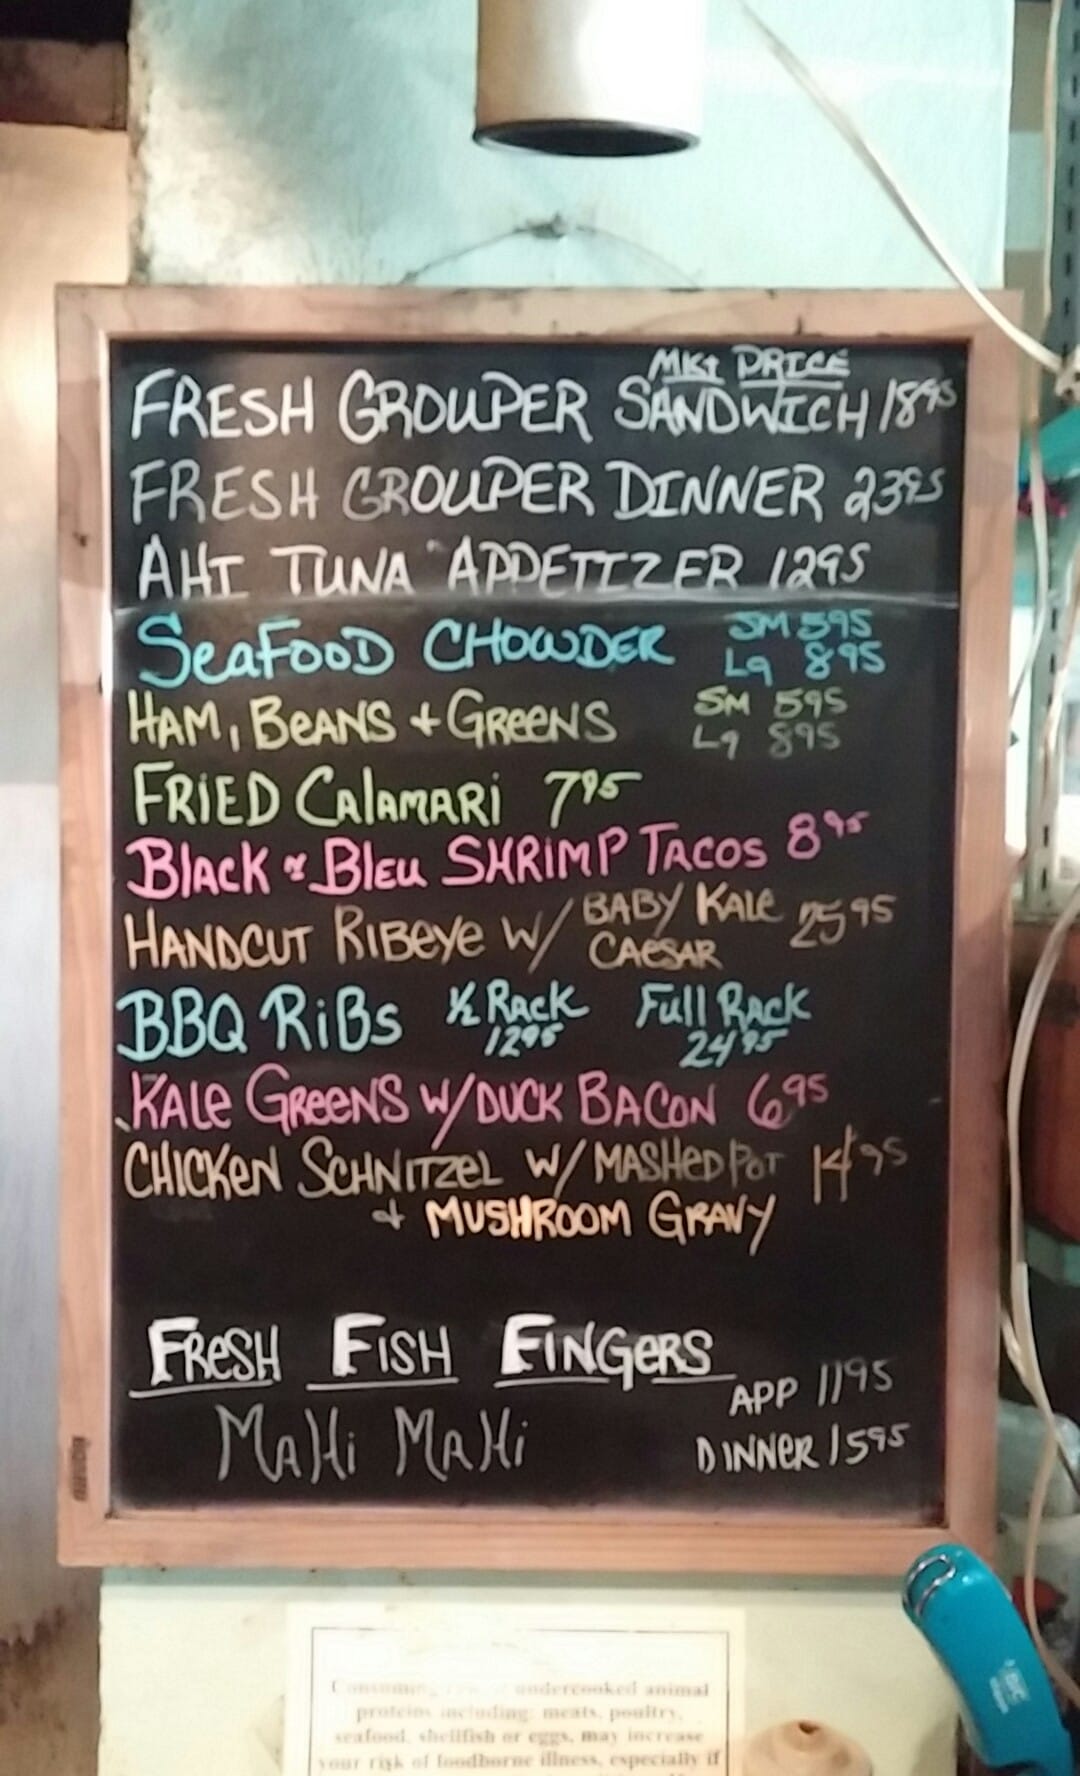 MKt PRICE
FRESH GROUPER SANDWICH 18 95
FRESH GROUPER DINNER 23 95
AHI TUNA APPETIZER 12 95
SeaFOOD CHOWDER SM 5 95
Lg 8 95
HAM, BeANS + GReeNS SM 5 95
Lg 8 95
FRiED CalAMARi 7 95
BlAcK & BlEu SHRiMP TAcos 8 95
HANDCUT RiBeye w/ BABY KAle 25 95
CAeSAR
BBQ RiBs ½ RAcK Full RAcK
12 95 24 95
KAle GReeNS w/ DUCK BACON 6 95
CHICKeN SCHNiTZEL w/ MASHED POT 14 95
+ MUSHROOM GRAVY
FReSH FISH FINGeRS
APP 11 95
MAHi MAHi
DINNeR 15 95
undercooked animal
proteins including: meats, poultry,
seafood, shellfish or eggs, may increase
your risk of foodborne illness, especially if